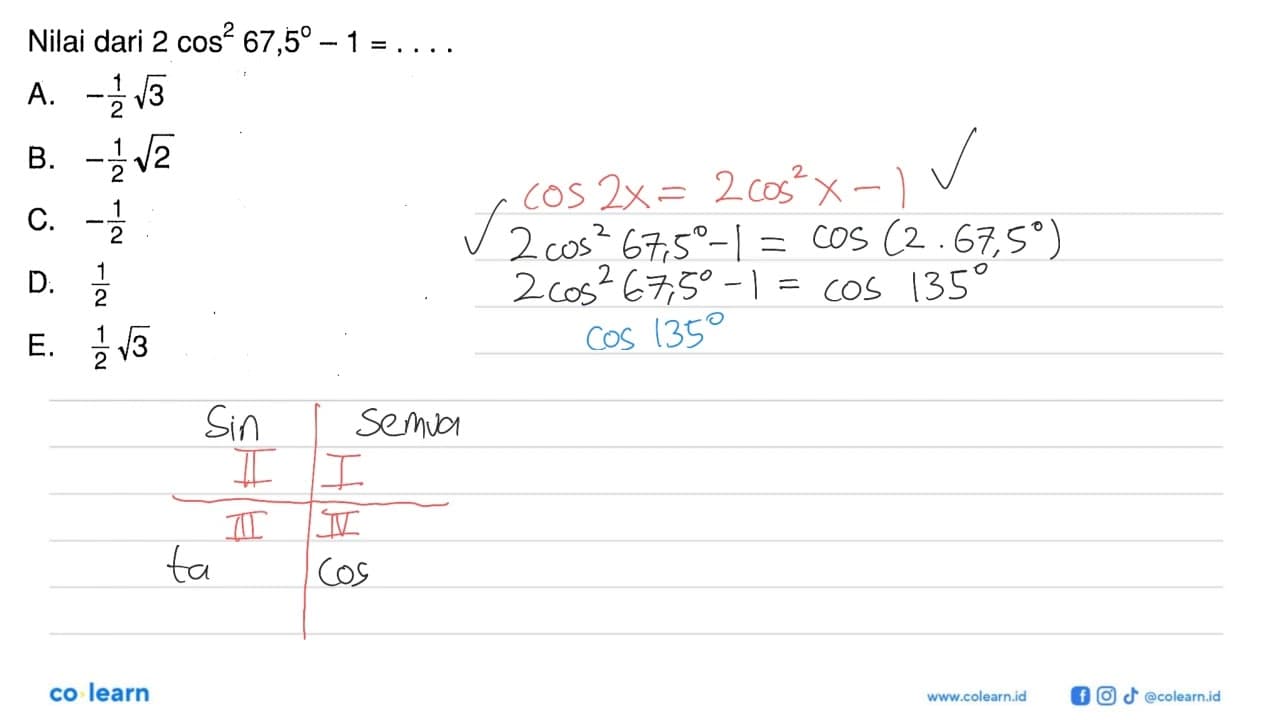 Nilai dari 2 cos² 67,5° – 1 = . . . .
A. –1/2 √3
B. –1/2 √2
C. –1/2
D. 1/2
E. 1/2 √3
cos 2x = 2 cos² x – 1 ✓
✓ 2 cos² 67,5° – 1 = cos (2 . 67,5°)
2 cos² 67,5° – 1 = cos 135°
cos 135°
Sin semua
II I
III IV
ta cos
co learn
www.colearn.id @colearn.id